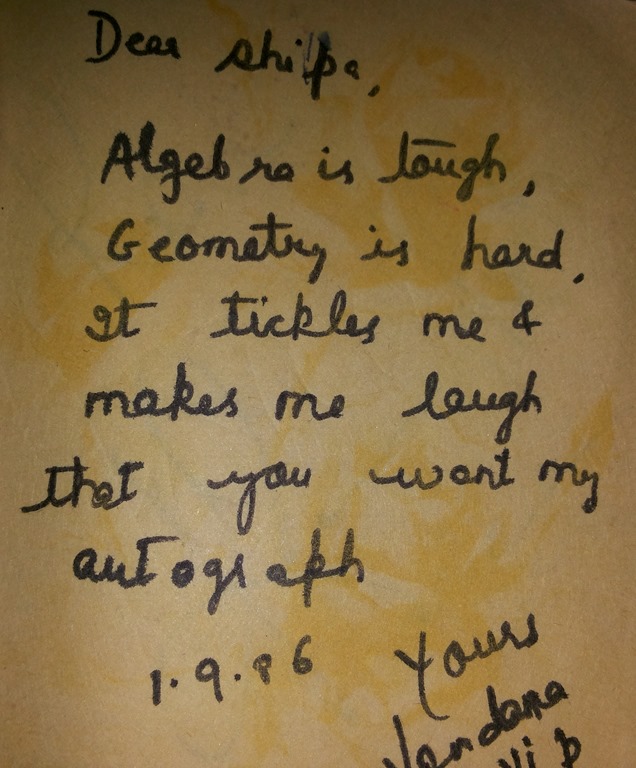 Dear Shilpa,
Algebra is tough,
Geometry is hard,
It tickles me &
makes me laugh
that you want my
autograph
1.9.86 Yours
Vandana
VI D